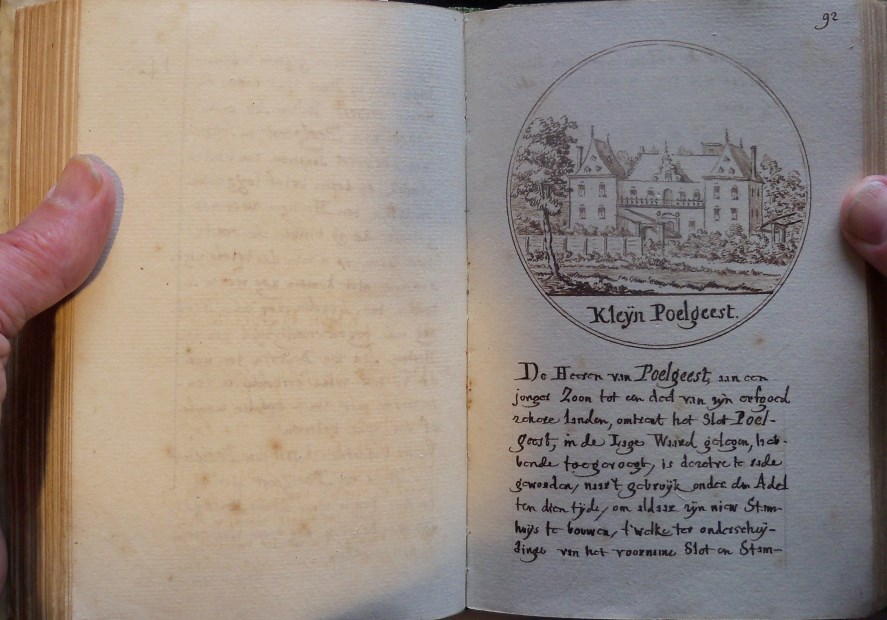 92
Kleÿn Poelgeest.
De Heeren van Poelgeest, aan een
jonger Zoon tot een deel van zÿn erfgoed
zekere landen, omtrent het Slot Poel-
geest, in de Lage Waard gelegen, heb-
bende toegevoegt, is dezelve te rade
geworden, naar't gebruÿk onder den Adel
ten dien tÿde, om aldaar zÿn nieuw Stam-
huÿs te bouwen, t'welke ter onderscheÿ-
dinge van het voorname Slot en Stam-